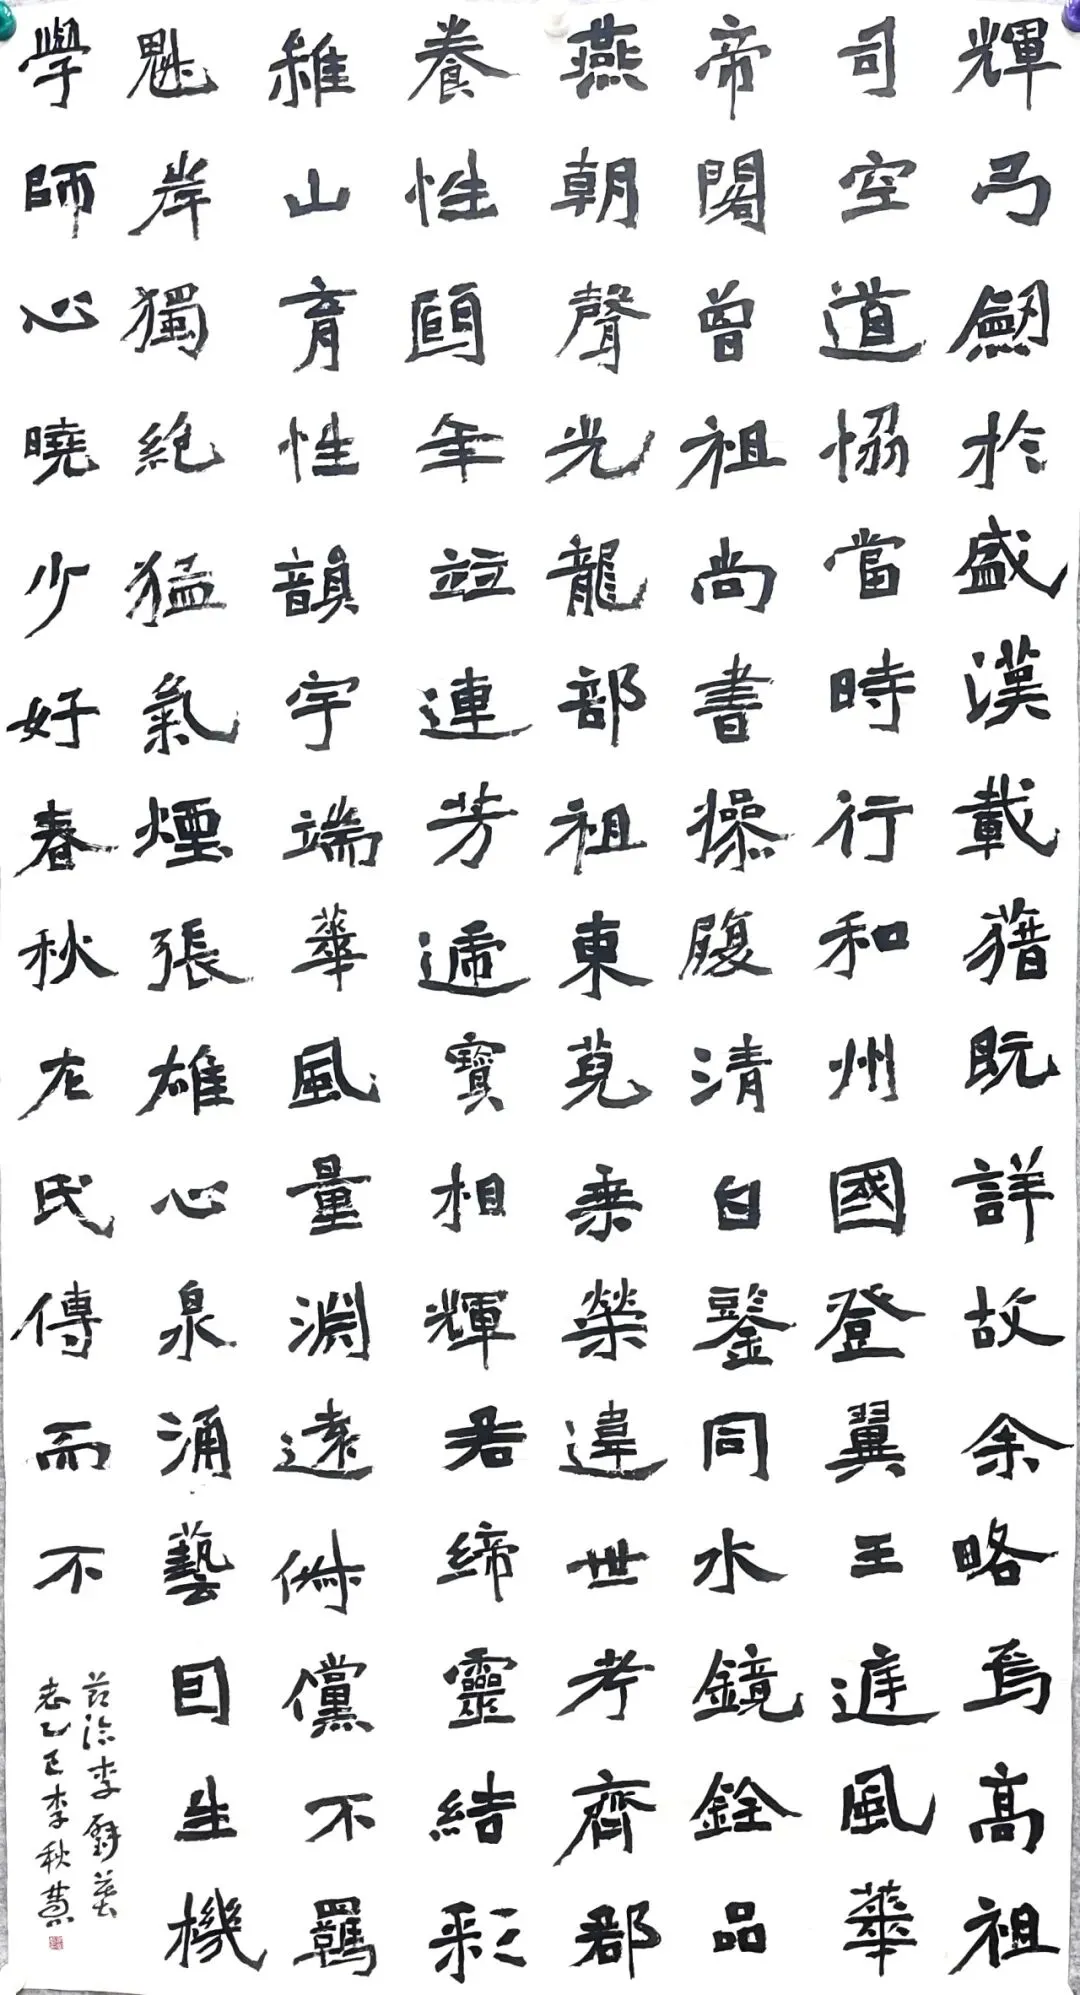 輝弓劔於盛漢載藉既詳故余略焉高祖
司空道協當時行和州國登翼王庭風華
帝閣曾祖尚書操履清白鑒同水鏡銓品
燕朝聲光龍部祖東莞乗榮違世考齊郡
養性頤年竝連芳遞寶相輝君締靈結彩
稚山育性韻宇端華風量淵遠俶儻不羈
魁岸獨絕猛氣煙張雄心泉涌藝因生機
學師心曉少好春秋左氏傳而不
節臨李璧墓
志乙巳李秋慧